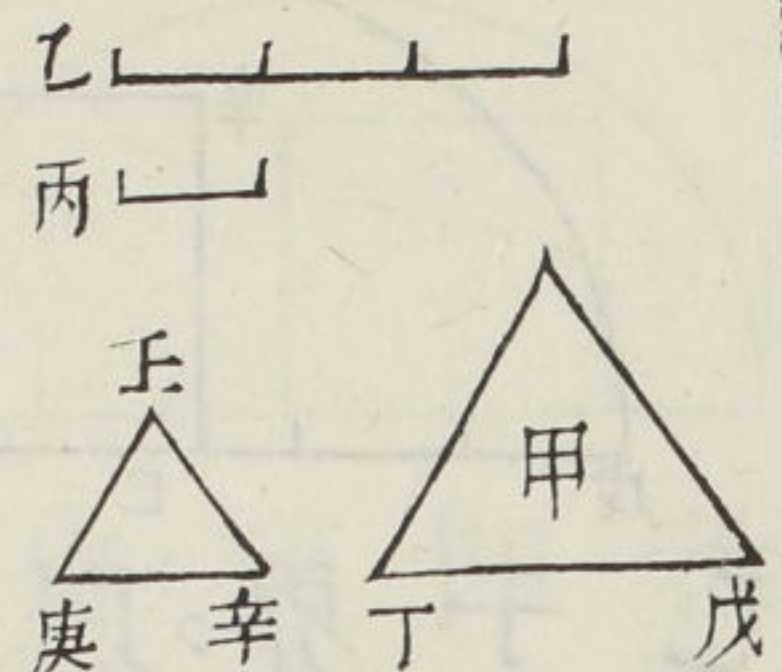 乙
丙
壬
甲
庚 辛 丁 戊